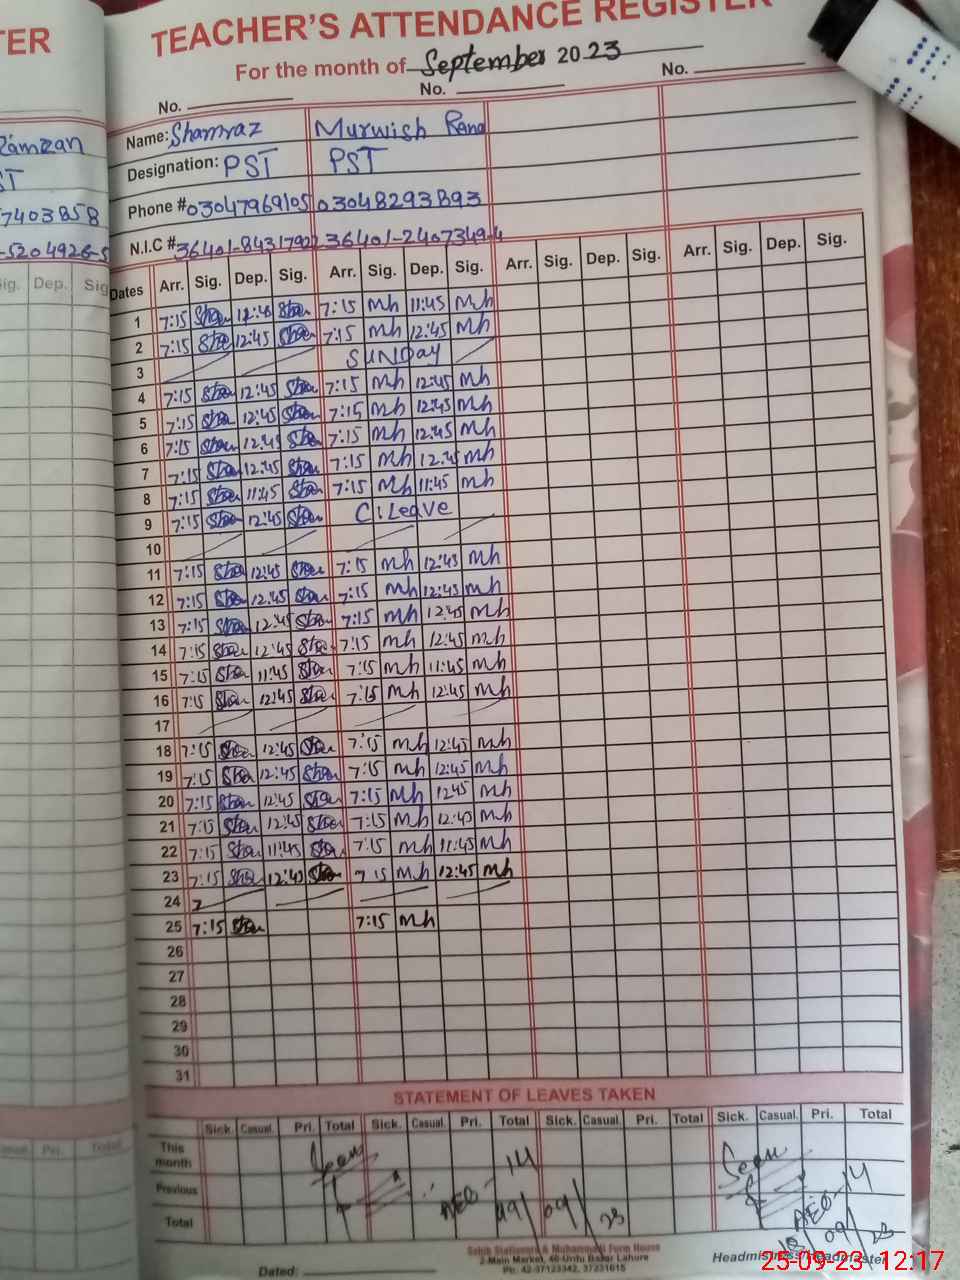 TER
TEACHER'S ATTENDANCE REGISTER
For the month of September 2023
No. No. No.
Ramzan
Name: Shamraz Murwish Rana
ST
Designation: PST PST
7403858
Phone # 03047969105 03048293893
-5204926-5
N.I.C # 36401-8431792 36401-2407349-4
Sig. Dep. Sig
Dates Arr. Sig. Dep. Sig. Arr. Sig. Dep. Sig. Arr. Sig. Dep. Sig. Arr. Sig. Dep. Sig.
1 7:15 Sha 12:45 Sha 7:15 Mh 11:45 Mh
2 7:15 Sha 12:45 Sha 7:15 mh 12:45 Mh
3 SUNDAY
4 7:15 Sha 12:45 Sha 7:15 Mh 12:45 Mh
5 7:15 Sha 12:45 Sha 7:15 Mh 12:45 Mh
6 7:15 Sha 12:45 Sha 7:15 Mh 12:45 Mh
7 7:15 Sha 12:45 Sha 7:15 Mh 12:45 mh
8 7:15 Sha 11:45 Sha 7:15 Mh 11:45 mh
9 7:15 Sha 12:45 Sha C.Leave
10
11 7:15 Sha 12:45 Sha 7:15 mh 12:45 Mh
12 7:15 Sha 12:45 Sha 7:15 Mh 12:45 Mh
13 7:15 Sha 12:45 Sha 7:15 mh 12:45 Mh
14 7:15 Sha 12:45 Sha 7:15 Mh 12:45 Mh
15 7:15 Sha 11:45 Sha 7:15 Mh 11:45 Mh
16 7:15 Sha 12:45 Sha 7:15 Mh 12:45 Mh
17
18 7:15 Sha 12:45 Sha 7:15 Mh 12:45 Mh
19 7:15 Sha 12:45 Sha 7:15 Mh 12:45 Mh
20 7:15 Sha 12:45 Sha 7:15 Mh 12:45 Mh
21 7:15 Sha 12:45 Sha 7:15 Mh 12:45 Mh
22 7:15 Sha 11:45 Sha 7:15 Mh 11:45 Mh
23 7:15 Sha 12:45 Sha 7 15 Mh 12:45 Mh
24 7
25 7:15 Sha 7:15 Mh
26
27
28
29
30
31
STATEMENT OF LEAVES TAKEN
Sick. Casual. Pri. Total Sick. Casual. Pri. Total Sick. Casual. Pri. Total Sick. Casual. Pri. Total
This month Seen Seen
Previous AEO - 14 AEO-14
Total 09/23 18/09/23
Headmistress/Headmaster
Dated:
2-Main Market, 40-Urdu Bazar Lahore
Ph: 42-37123342, 37231615
25-09-23 12:17